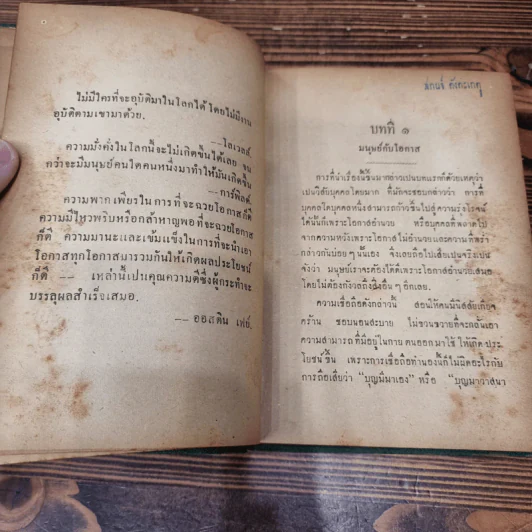 ไม่มีใครที่จะอุบัติมาในโลกได้ โดยไม่มีงาน
อุบัติตามเขามาด้วย.
——โลเวลล์.
ความมั่งคั่งในโลกนี้จะไม่เกิดขึ้นได้เลย จน
กว่าจะมีมนุษย์คนใดคนหนึ่งมาทำให้มันเกิดขึ้น
——การ์ฟิลด์.
ความพากเพียรใน การที่จะฉวยโอกาสก็ดี
ความมีไหวพริบหรือกล้าหาญพอที่จะฉวยโอกาส
ก็ดี ความมานะและเข้มแข็งในการที่จะนำเอา
โอกาสทุกโอกาสมารวมกันให้เกิดผลประโยชน์
ก็ดี —— เหล่านี้เปนคุณความดีซึ่งผู้กระทำจะ
บรรลุผลสำเร็จเสมอ.
—— ออสติน เฟย์.
บทที่ ๑
มนุษย์กับโอกาส
การที่นำเรื่องนี้ขึ้นมากล่าวเปนบทแรกก็ด้วยเหตุว่า
เปนวิสัยบุคคลโดยมาก ที่มักจะชอบกล่าวว่า การที่
บุคคลใดบุคคลหนึ่งสามารถก้าวขึ้นไปสู่ความรุ่งโรจน์
ได้นั้นก็เพราะโอกาสอำนวย หรือบุคคลที่พลาดไป
จากความหวังเพราะโอกาสไม่อำนวยและความที่พร่ำ
กล่าวกันบ่อยๆ นั้นเอง จึงเลยถือไปเสียเปนจริงเปน
จังว่า มนุษย์เราจะต้องได้ดีเพราะโอกาสอำนวยเสมอ
โดยไม่ต้องกังวลถึงสิ่งอื่นๆ อีกเลย.
ความเชื่อถือดังกล่าวนี้ สอนให้คนมีนิสสัยเกียจ
คร้าน ชอบนอนสะบาย ไม่ขวนขวายที่จะกลั่นเอา
ความสามารถ ที่มีอยู่ในกาย ตนออกมาใช้ ให้เกิด ประ
โยชน์ขึ้น เพราะการเชื่อถือทำนองนี้ก็ไม่ผิดอะไรกับ
การถือเสียว่า “บุญมีมาเอง” หรือ “บุญมาวาสนา